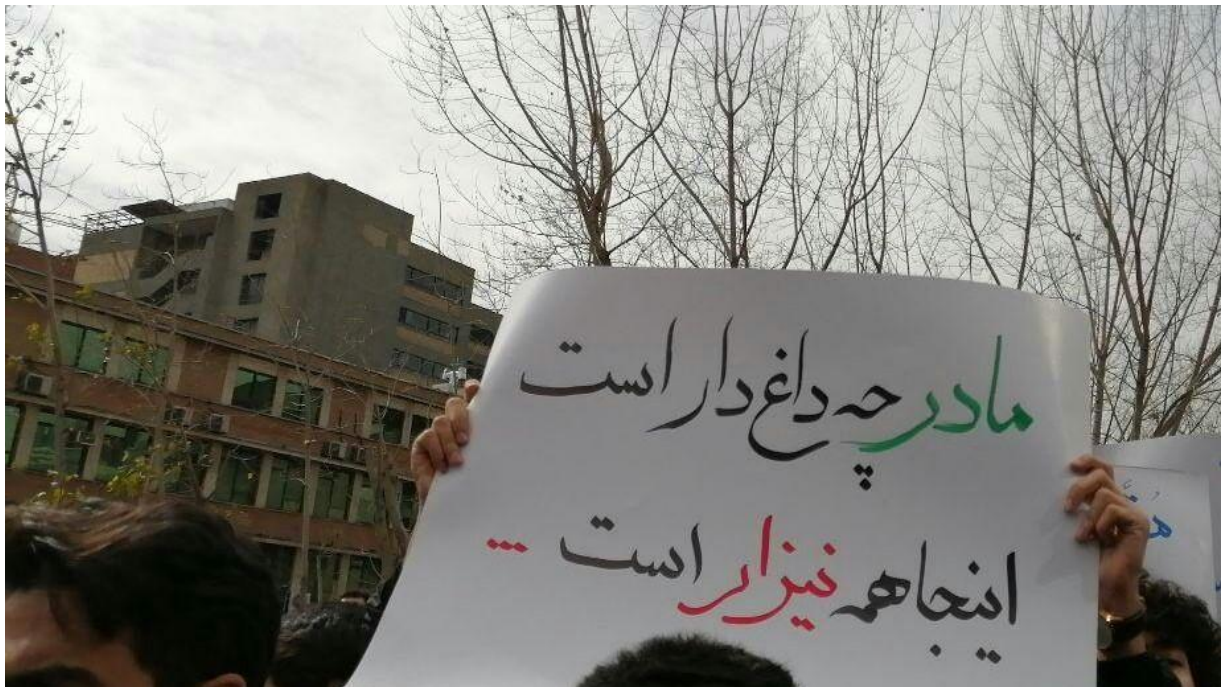 مادر چه داغ دار است
اینجا هم نیزار است ...